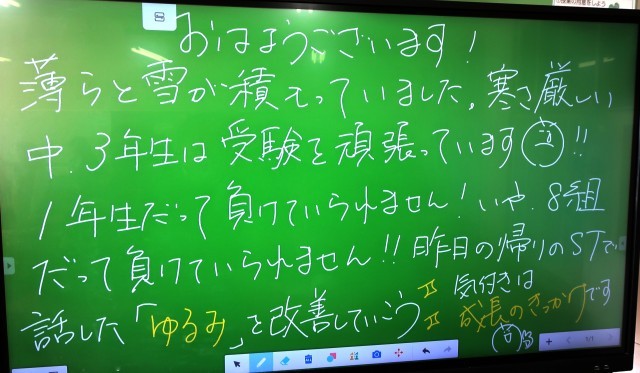 おはようございます！
薄らと雪が積もっていました。寒さ厳しい
中、3年生は受験を頑張っています!!
1年生だって負けていられません！いや、8組
だって負けていられません!!昨日の帰りのSTで
話した「ゆるみ」を改善していこう
気付きは
成長のきっかけです
1/1